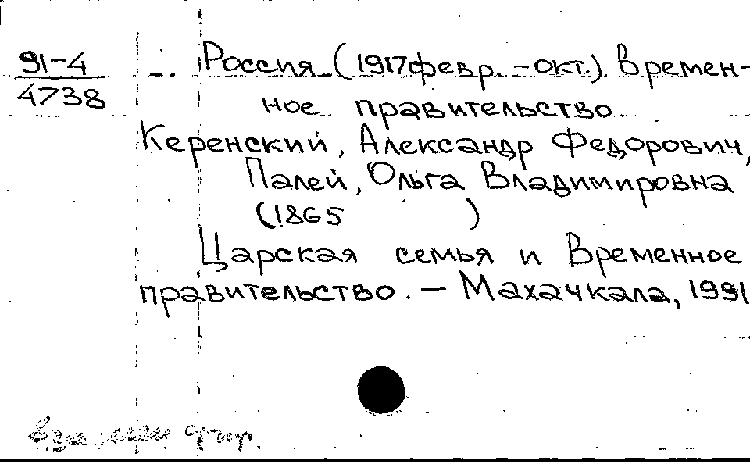 91-4
4738
Россия (1917 февр. - окт.). Времен-
ное правительство
Керенский, Александр Федорович,
Палей, Ольга Владимировна
(1865 )
Царская семья и Временное
правительство. - Махачкала, 1991